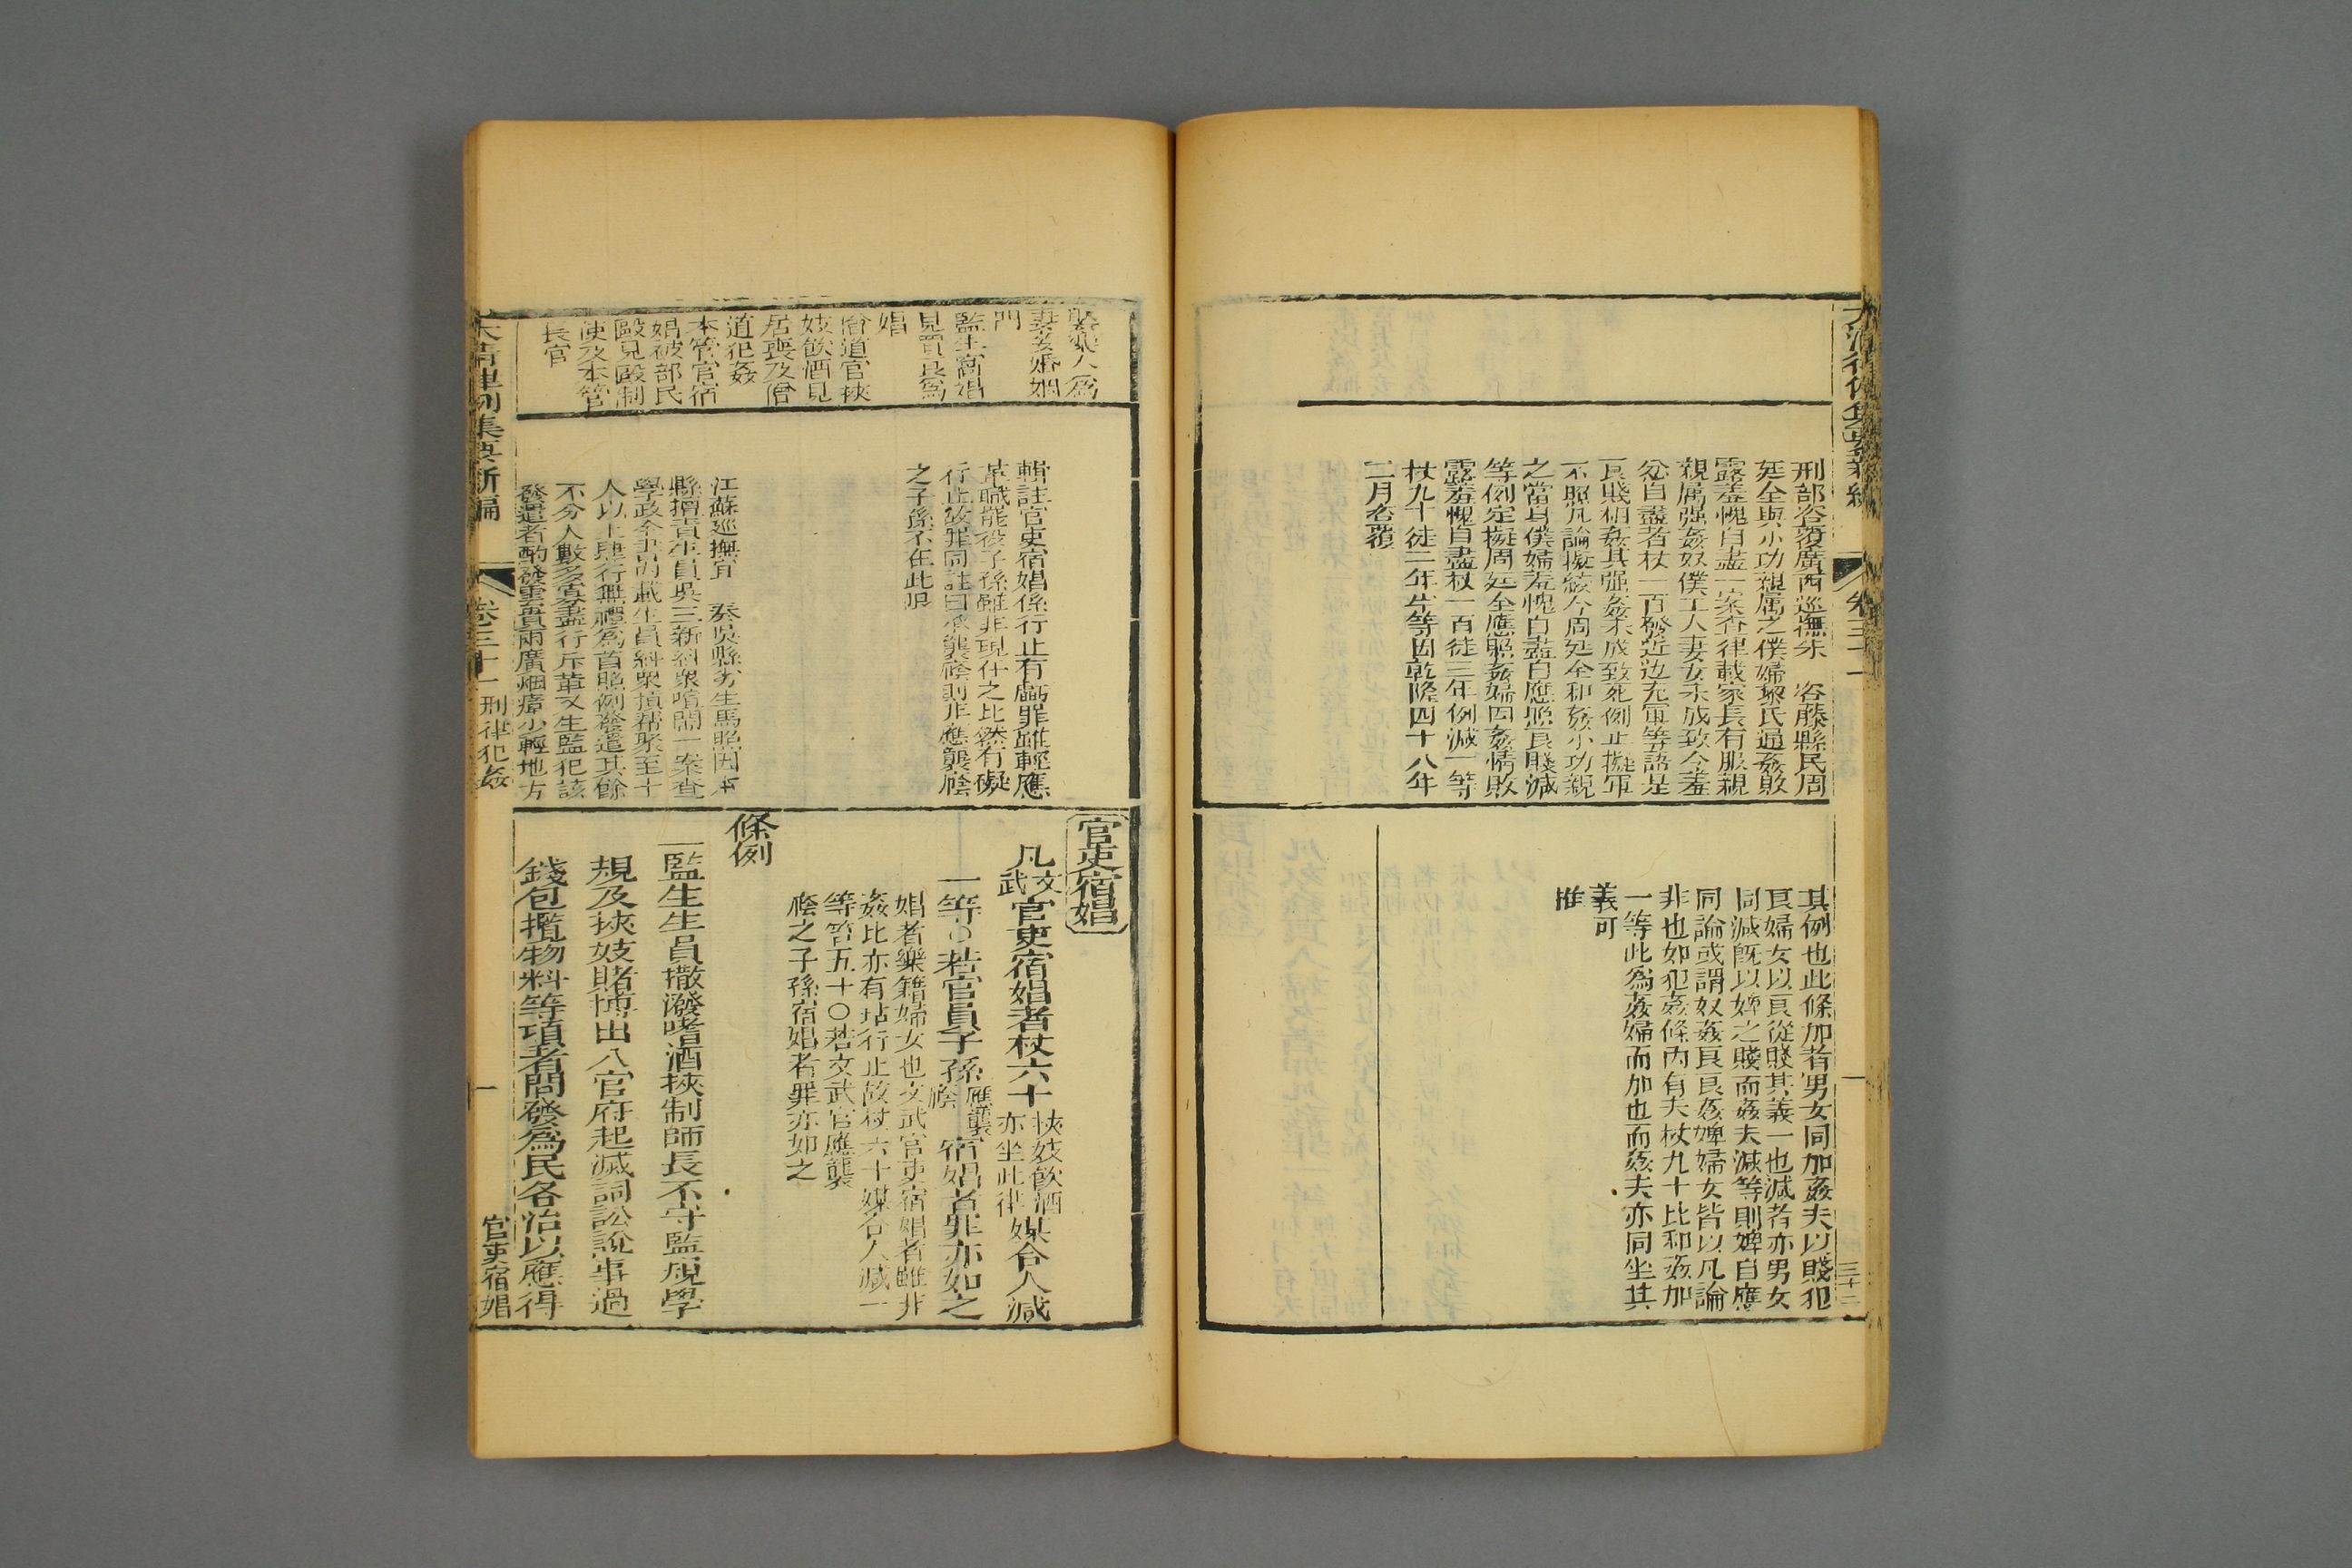 大清律例集要新編
卷三十一
三十二
刑部咨覆廣西巡撫朱 咨藤縣民周
延全與小功親属之僕婦黎氏通姦敗
露羞愧自盡一案查律載家長有服親
親属强姦奴僕工人妻女未成致令羞
忿自盡者杖一百發近边充軍等語是
良賤相姦其强姦未成致死例止擬軍
不照凡論擬絞今周延全和姦小功親
之當身僕婦羞愧自盡自應照良賤減
等例定擬周延全應照姦婦因姦情敗
露羞愧自盡杖一百徒三年例減一等
杖九十徒二年半等因乾隆四十八年
二月咨覆
其例也此條加者男女同加姦夫以賤犯
良婦女以良從賤其義一也減者亦男女
同減既以婢之賤而姦夫減等則婢自應
同論或謂奴姦良良姦婢婦女皆以凡論
非也如犯姦條內有夫杖九十比和姦加
一等此為姦婦而加也而姦夫亦同坐其
義可
推
娶樂人為
妻妾婚姻
門
監生窩娼
見買良為
娼
僧道官挾
妓飲酒見
居喪及僧
道犯姦
本管官宿
娼被部民
毆見毆制
使及本管
長官
輯註官吏宿娼係行止有虧罪雖輕應
革職罷役子孫雖非現仕之比然有礙
行止故罪同註曰應襲廕則非應襲廕
之子孫不在此限
江蘇巡撫宜 奏吳縣劣生馬照因本
縣擅責生員吳三新糾衆喧鬧一案查
學政全書內載生員糾衆掯帮聚至十
人以上肆行無禮為首照例發遣其餘
不分人數多寡盡行斥革又生監犯該
發遣者酌發雲貴兩廣烟瘴少輕地方
官吏宿娼
凡文武官吏宿娼者杖六十挾妓飲酒亦坐此律媒合人減
一等○若官員子孫應襲廕宿娼者罪亦如之
娼者樂籍婦女也文武官吏宿娼者雖非
姦比亦有玷行止故杖六十媒合人減一
等笞五十○若文武官應襲
廕之子孫宿娼者罪亦如之
條例
一監生生員撒潑嗜酒挾制師長不守監規學
規及挾妓賭博出入官府起滅詞訟說事過
錢包攬物料等項者問發為民各治以應得
大清律例集要新編
卷三十一 刑律犯姦
一
官吏宿娼